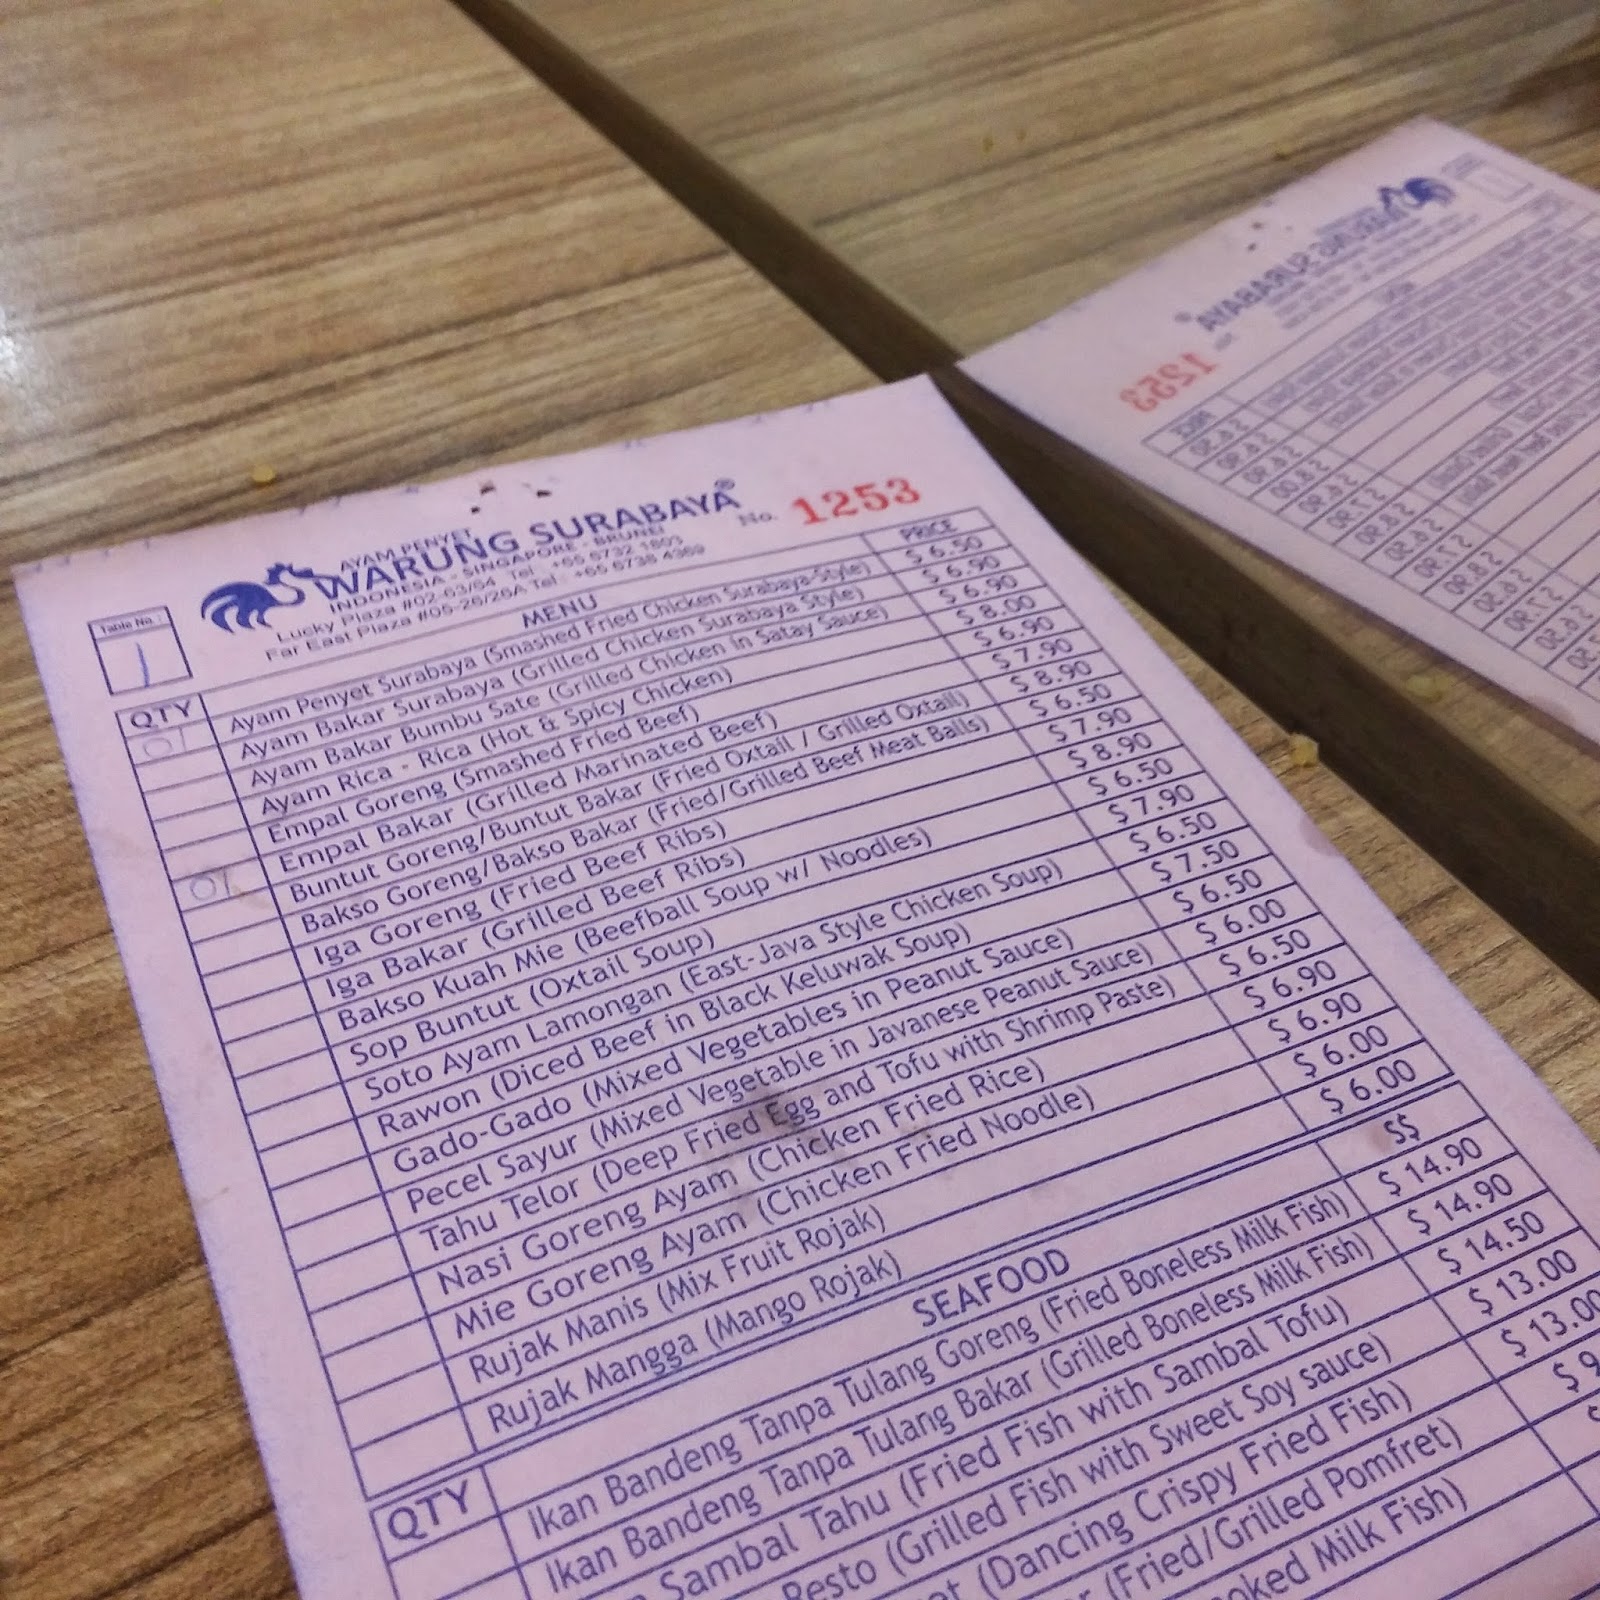 AYAM PENYET
WARUNG SURABAYA®
INDONESIA - SINGAPORE - BRUNEI
Lucky Plaza #02-63/64 Tel : +65 6732 1803
Far East Plaza #05-26/26A Tel : +65 6738 4369
No. 1253
Table No. :
1
QTY MENU PRICE
01 Ayam Penyet Surabaya (Smashed Fried Chicken Surabaya Style) $ 6.50
Ayam Bakar Surabaya (Grilled Chicken Surabaya Style) $ 6.90
Ayam Bakar Bumbu Sate (Grilled Chicken in Satay Sauce) $ 6.90
Ayam Rica - Rica (Hot & Spicy Chicken) $ 8.00
Empal Goreng (Smashed Fried Beef) $ 6.90
Empal Bakar (Grilled Marinated Beef) $ 7.90
Buntut Goreng/Buntut Bakar (Fried Oxtail / Grilled Oxtail) $ 8.90
Bakso Goreng/Bakso Bakar (Fried/Grilled Beef Meat Balls) $ 6.50
Iga Goreng (Fried Beef Ribs) $ 7.90
Iga Bakar (Grilled Beef Ribs) $ 8.90
Bakso Kuah Mie (Beefball Soup w/ Noodles) $ 6.50
Sop Buntut (Oxtail Soup) $ 7.90
Soto Ayam Lamongan (East-Java Style Chicken Soup) $ 6.50
Rawon (Diced Beef in Black Keluwak Soup) $ 7.50
Gado-Gado (Mixed Vegetables in Peanut Sauce) $ 6.50
Pecel Sayur (Mixed Vegetable in Javanese Peanut Sauce) $ 6.00
Tahu Telor (Deep Fried Egg and Tofu with Shrimp Paste) $ 6.50
Nasi Goreng Ayam (Chicken Fried Rice) $ 6.90
Mie Goreng Ayam (Chicken Fried Noodle) $ 6.90
Rujak Manis (Mix Fruit Rojak) $ 6.00
Rujak Mangga (Mango Rojak) $ 6.00
QTY SEAFOOD S$
Ikan Bandeng Tanpa Tulang Goreng (Fried Boneless Milk Fish) $ 14.90
Ikan Bandeng Tanpa Tulang Bakar (Grilled Boneless Milk Fish) $ 14.90
Sambal Tahu (Fried Fish with Sambal Tofu) $ 14.50
(Grilled Fish with Sweet Soy sauce) $ 13.00
(Dancing Crispy Fried Fish) $ 13.00
(Fried/Grilled Pomfret) $ 9
Milk Fish)
WARUNG SURABAYA®
1253